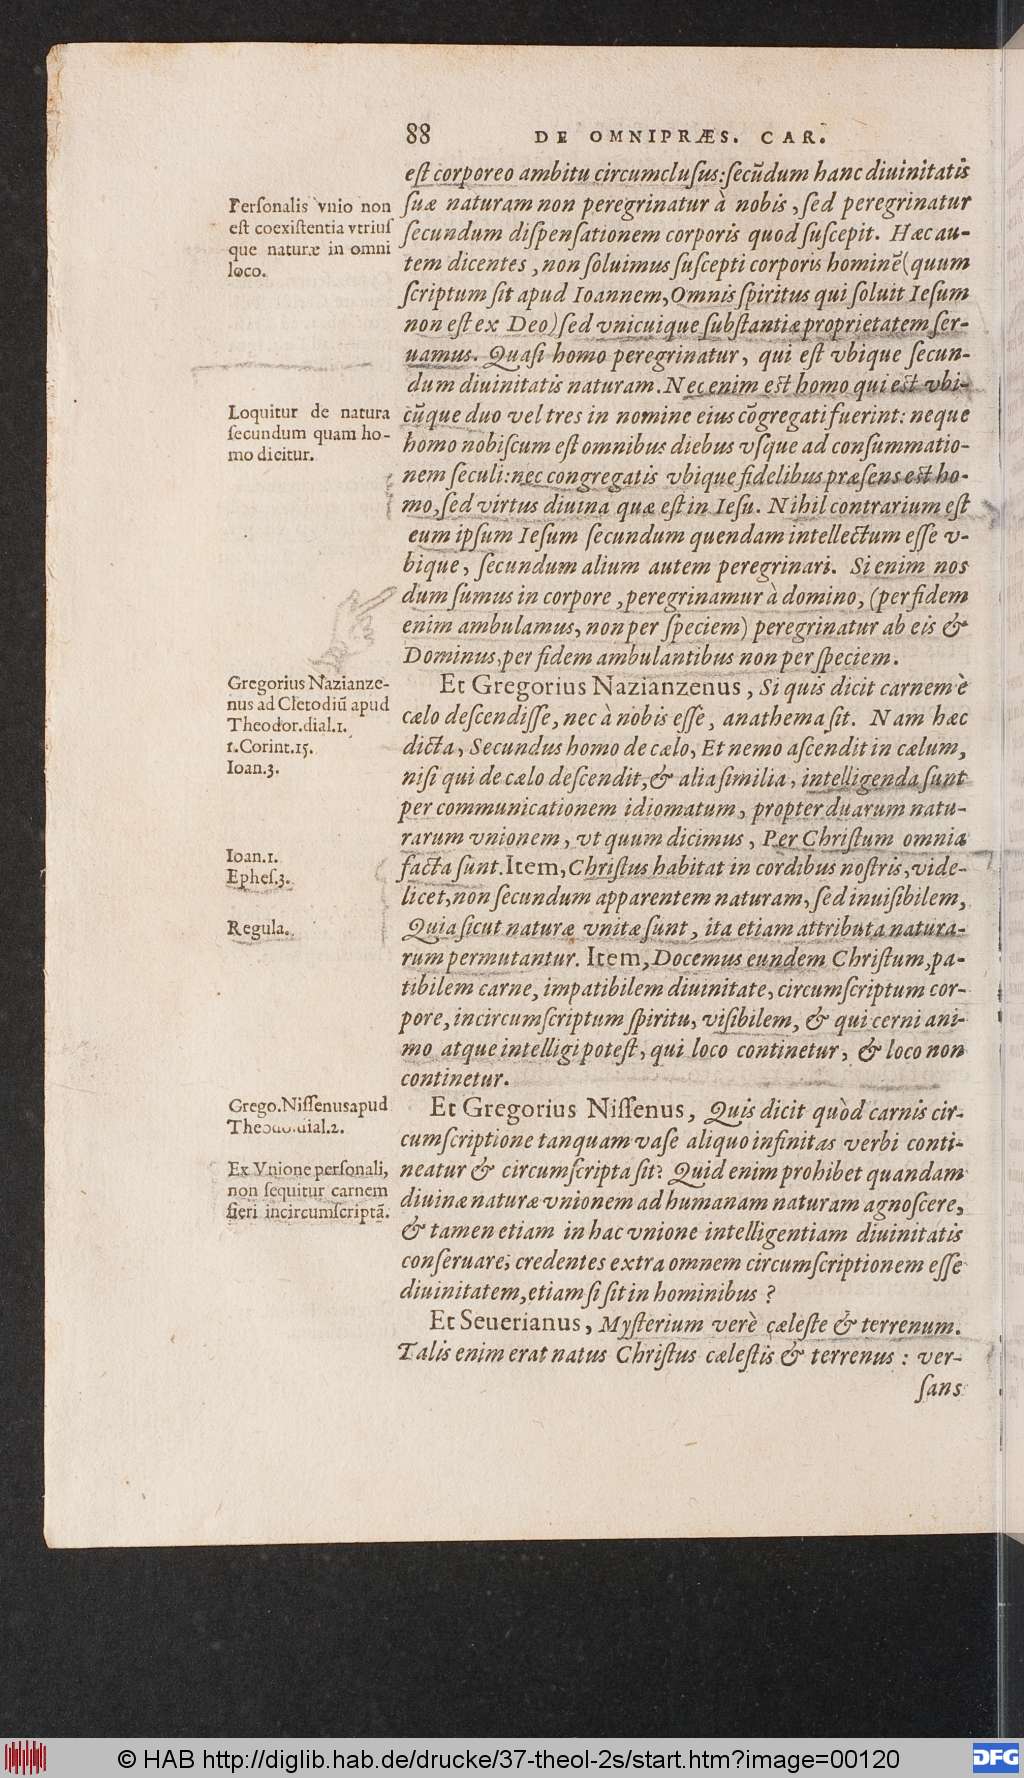 88 DE OMNIPRÆS. CAR.
est corporeo ambitu circumclusus: secũdum hanc diuinitatis
suæ naturam non peregrinatur à nobis, sed peregrinatur
secundum dispensationem corporis quod suscepit. Hæc au-
tem dicentes, non soluimus suscepti corporis hominẽ (quum
scriptum sit apud Ioannem, Omnis spiritus qui soluit Iesum
non est ex Deo) sed vnicuique substantiæ proprietatem ser-
uamus. Quasi homo peregrinatur, qui est vbique secun-
dum diuinitatis naturam. Nec enim est homo qui est vbi-
cũque duo vel tres in nomine eius cõgregati fuerint: neque
homo nobiscum est omnibus diebus vsque ad consummatio-
nem seculi: nec congregatis vbique fidelibus præsens est ho-
mo, sed virtus diuina quæ est in Iesu. Nihil contrarium est
eum ipsum Iesum secundum quendam intellectum esse v-
bique, secundum alium autem peregrinari. Si enim nos
dum sumus in corpore, peregrinamur à domino, (per fidem
enim ambulamus, non per speciem) peregrinatur ab eis &
Dominus, per fidem ambulantibus non per speciem.
Et Gregorius Nazianzenus, Si quis dicit carnem è
cælo descendisse, nec à nobis esse, anathema sit. Nam hæc
dicta, Secundus homo de cælo, Et nemo ascendit in cælum,
nisi qui de cælo descendit, & alia similia, intelligenda sunt
per communicationem idiomatum, propter duarum natu-
rarum vnionem, vt quum dicimus, Per Christum omnia
facta sunt. Item, Christus habitat in cordibus nostris, vide-
licet, non secundum apparentem naturam, sed inuisibilem,
Quia sicut naturæ vnitæ sunt, ita etiam attributa natura-
rum permutantur. Item, Docemus eundem Christum, pa-
tibilem carne, impatibilem diuinitate, circumscriptum cor-
pore, incircumscriptum spiritu, visibilem, & qui cerni ani-
mo atque intelligi potest, qui loco continetur, & loco non
continetur.
Et Gregorius Nissenus, Quis dicit quòd carnis cir-
cumscriptione tanquam vase aliquo infinitas verbi conti-
neatur & circumscripta sit? Quid enim prohibet quandam
diuinæ naturæ vnionem ad humanam naturam agnoscere,
& tamen etiam in hac vnione intelligentiam diuinitatis
conseruare, credentes extra omnem circumscriptionem esse
diuinitatem, etiam si sit in hominibus?
Et Seuerianus, Mysterium verè cæleste & terrenum.
Talis enim erat natus Christus cælestis & terrenus: ver-
sans
Personalis vnio non
est coexistentia vtrius
que naturæ in omni
loco.
Loquitur de natura
secundum quam ho-
mo dicitur.
Gregorius Nazianze-
nus ad Cletodiũ apud
Theodor. dial. 1.
1. Corint. 15.
Ioan. 3.
Ioan. 1.
Ephes. 3.
Regula.
Grego. Nissenus apud
Theodo. dial. 2.
Ex Vnione personali,
non sequitur carnem
fieri incircumscriptã.
© HAB http://diglib.hab.de/drucke/37-theol-2s/start.htm?image=00120
DFG